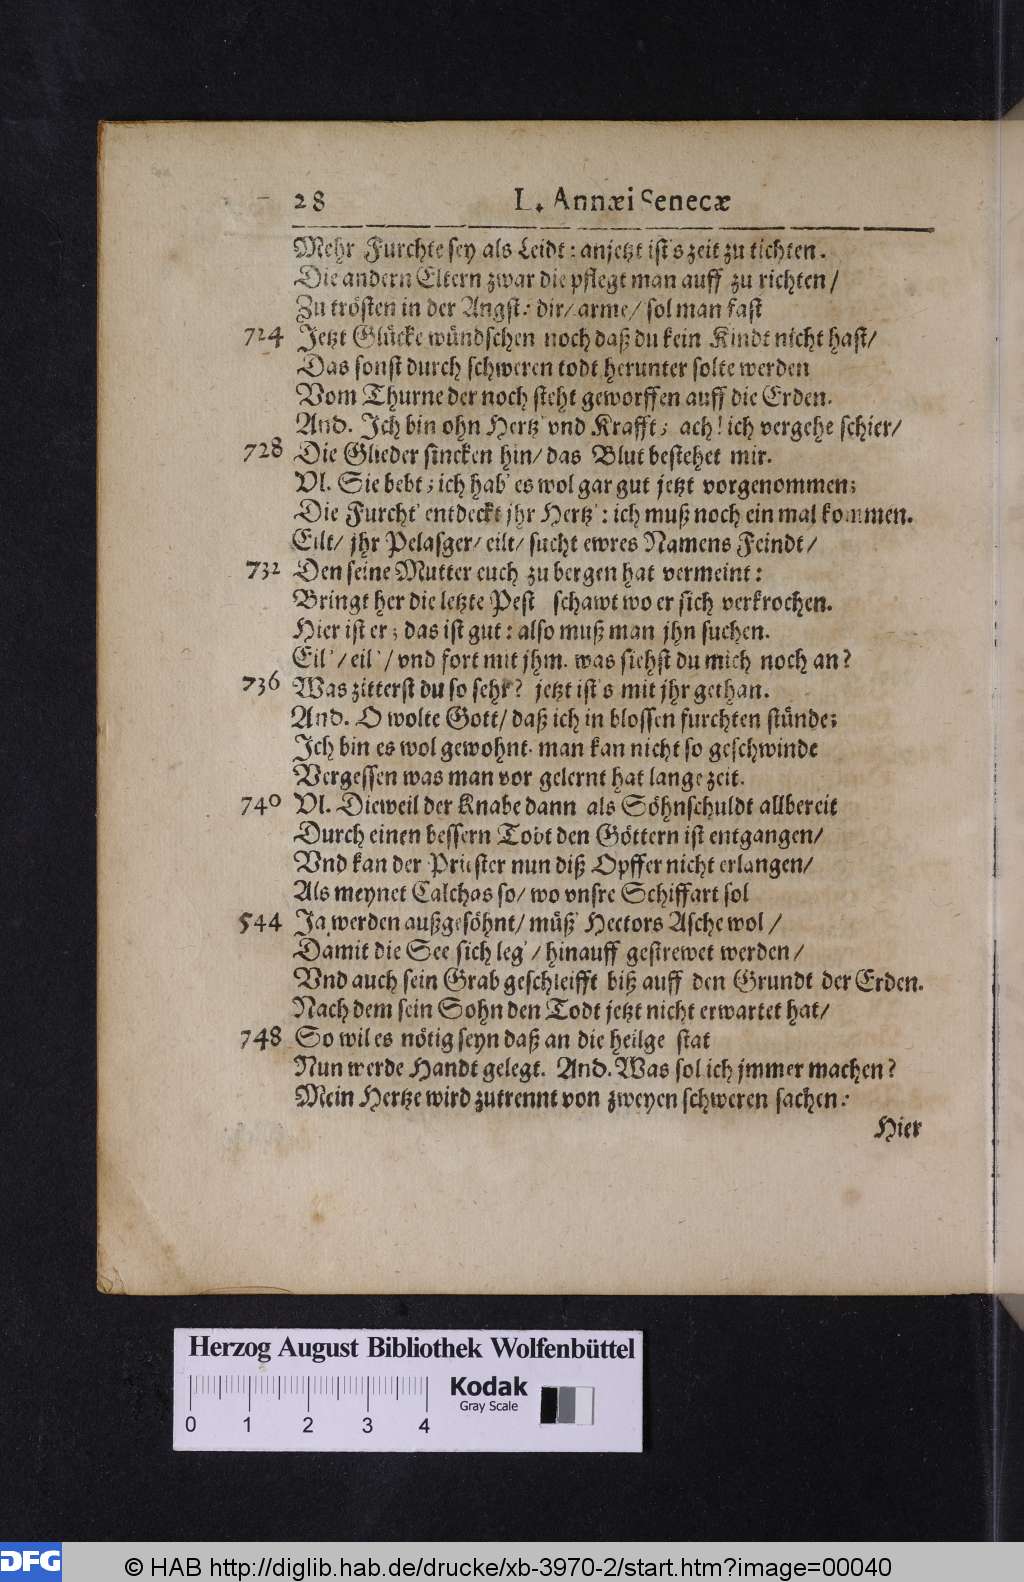 28 L. Annæi Senecæ
Mehr Furchte sey als Leidt: anjetzt ist's zeit zu tichten.
Die andern Eltern zwar die pflegt man auff zu richten/
Zu trösten in der Angst: dir/ arme/ sol man fast
724 Jetzt Glücke wündschen noch daß du kein Kindt nicht hast/
Das sonst durch schweren todt herunter solte werden
Vom Thurne der noch steht geworffen auff die Erden.
And. Ich bin ohn Hertz' vnd Krafft; ach! ich vergehe schier/
728 Die Glieder sincken hin/ das Blut bestehet mir.
Vl. Sie bebt; ich hab' es wol gar gut jetzt vorgenommen;
Die Furcht' entdeckt jhr Hertz': ich muß noch ein mal kommen.
Eilt/ jhr Pelasger/ eilt/ sucht ewres Namens Feindt/
732 Den seine Mutter euch zu bergen hat vermeint:
Bringt her die letzte Pest schawt wo er sich verkrochen.
Hier ist er; das ist gut: also muß man jhn suchen.
Eil'/ eil'/ vnd fort mit jhm. was siehst du mich noch an?
736 Was zitterst du so sehr? jetzt ist's mit jhr gethan.
And. O wolte Gott/ daß ich in blossen furchten stünde;
Ich bin es wol gewohnt. man kan nicht so geschwinde
Vergessen was man vor gelernt hat lange zeit.
740 Vl. Dieweil der Knabe dann als Söhnschuldt allbereit
Durch einen bessern Todt den Göttern ist entgangen/
Vnd kan der Priester nun diß Opffer nicht erlangen/
Als meynet Calchas so/ wo vnsre Schiffart sol
544 Ja werden außgesöhnt/ müß' Hectors Asche wol/
Damit die See sich leg'/ hinauff gestrewet werden/
Vnd auch sein Grab geschleifft biß auff den Grundt der Erden.
Nach dem sein Sohn den Todt jetzt nicht erwartet hat/
748 So wil es nötig seyn daß an die heilge stat
Nun werde Handt gelegt. And. Was sol ich jmmer machen?
Mein Hertze wird zutrennt von zweyen schweren sachen:
Hier
Herzog August Bibliothek Wolfenbüttel
Kodak
Gray Scale
0 1 2 3 4
DFG
© HAB http://diglib.hab.de/drucke/xb-3970-2/start.htm?image=00040